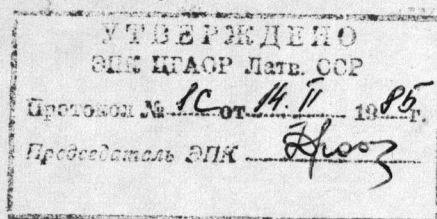 УТВЕРЖДЕНО
ЭПК ЦГАОР Латв. ССР
Протокол № 1С от 14. II 1985г.
Председатель ЭПК